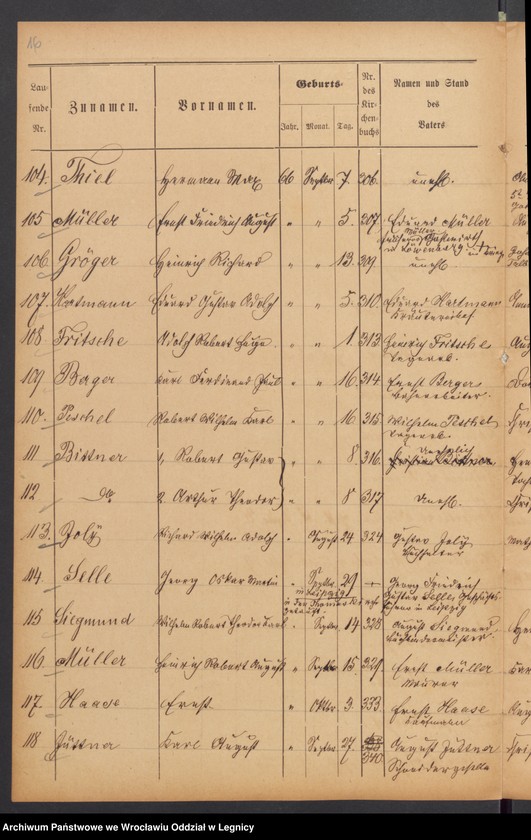 16
Lau-
fende
Nr.
Zunamen.
Vornamen.
Geburts-
Jahr.
Monat.
Tag.
Nr.
des
Kir-
chen-
buchs
Namen und Stand
des
Vaters
104. Thiel Hermann Max 66 Septbr 7. 306. unehl.
105 Müller Ernst Friedrich August " " 5. 307. Eduard Müller
106. Gröger Heinrich Richard " " 13. 309. unehl
107. Hartmann Eduard Gustav Adolph " " 5. 310. Eduard Hartmann
Kräutereibes.
108 Fritsche Adolph Robert " " 1. 313. Heinrich Fritsche
Tagearb.
109 Berger Karl Ferdinand Paul " " 16. 314. Ernst Berger
110. Peschel Robert Wilhelm Karl " " 16 315. Wilhelm Peschel
Tagearb.
111 Bittner 1, Robert Gustav " " 8. 316. unehelich
112 do 2. Arthur Theodor " " 8 317 unehl.
113. Joly Richard Wilhelm Adolph " August 24 324 Gustav Joly
Buchhalter
114. Selle Georg Oskar " Septbr. 29 Georg Friedrich
in Leipzig
Gustav Selle
in Leipzig
115 Siegmund Wilhelm Robert Theodor Karl " Septbr. 14 328 August Siegmund
116. Müller Heinrich Robert August " Septbr 15. 329. Ernst Müller
Maurer
117. Haase Ernst " Oktbr 3. 333. Ernst Haase
Kaufmann
118 Jüttner Karl August " Septbr. 27. 340. August Jüttner
Schneidergeselle
Archiwum Państwowe we Wrocławiu Oddział w Legnicy